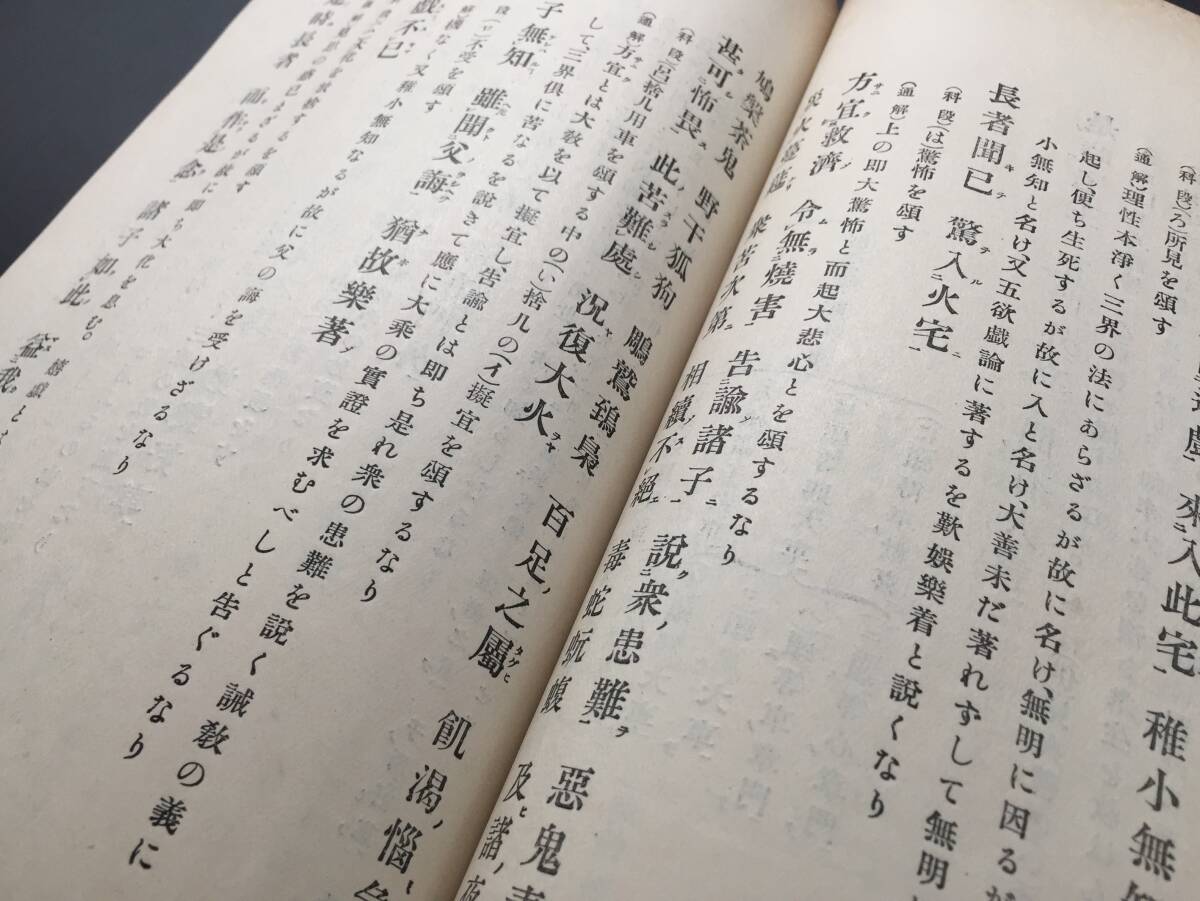 (科段)(ろ)所見を頌す
來入此宅 稚小無
(通解)理性本淨く三界の法にあらざるが故に名け、無明に因るが
起し便ち生死するが故に入と名け、大善未だ著れずして無明
小無知と名け、又五欲戲論に著するを歎娛樂着と說くなり
長者聞已 驚入火宅
(科段)(は)驚怖を頌す
(通解)上の即大驚怖と而起大悲心とを頌するなり
方宜救濟 令無燒害
告諭諸子 說衆患難 惡鬼毒
相續不絕 毒蛇蚖蝮 及諸夜
鳩槃茶鬼 野干狐狗 鵰鷲鵄梟 百足之屬 飢渴惱
甚可怖畏 此苦難處 況復大火
(科段)(呂)捨几用車を頌する中の(い)捨几の(イ)擬宜を頌するなり
(通解)方宜とは大敎を以て擬宜し、告諭とは即ち是れ衆の患難を說く誡敎の義に
して、三界俱に苦なるを說きて應に大乘の實證を求むべしと告ぐるなり
子無知 雖聞父誨 猶故樂著
戲不已
段(ロ)不受を頌す
又稚小無知なるが故に父の誨を受けざるなり
時長者 而作是念 諸子如此 益我